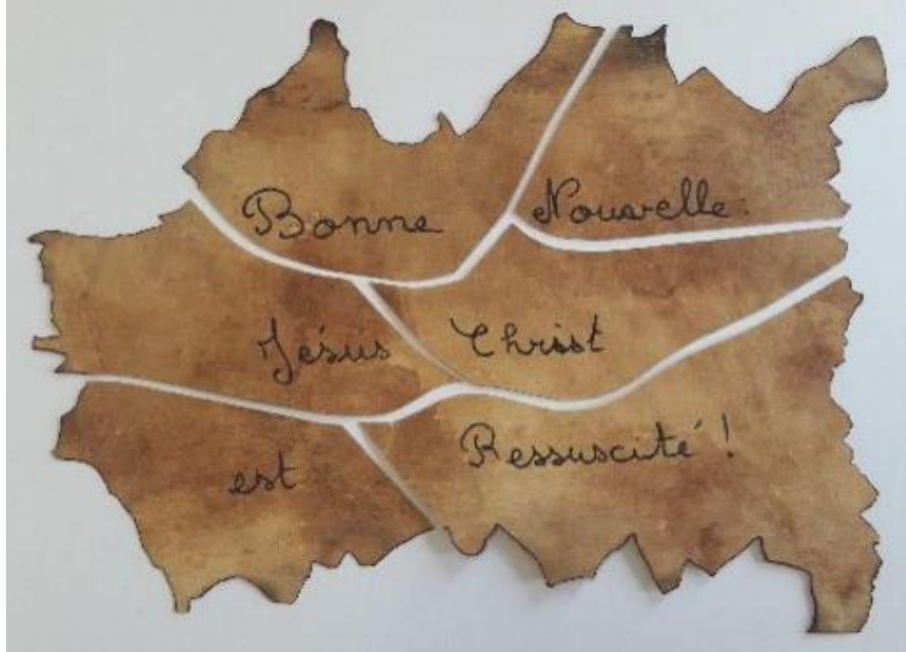 Bonne Nouvelle
Jésus Christ
est Ressuscité !